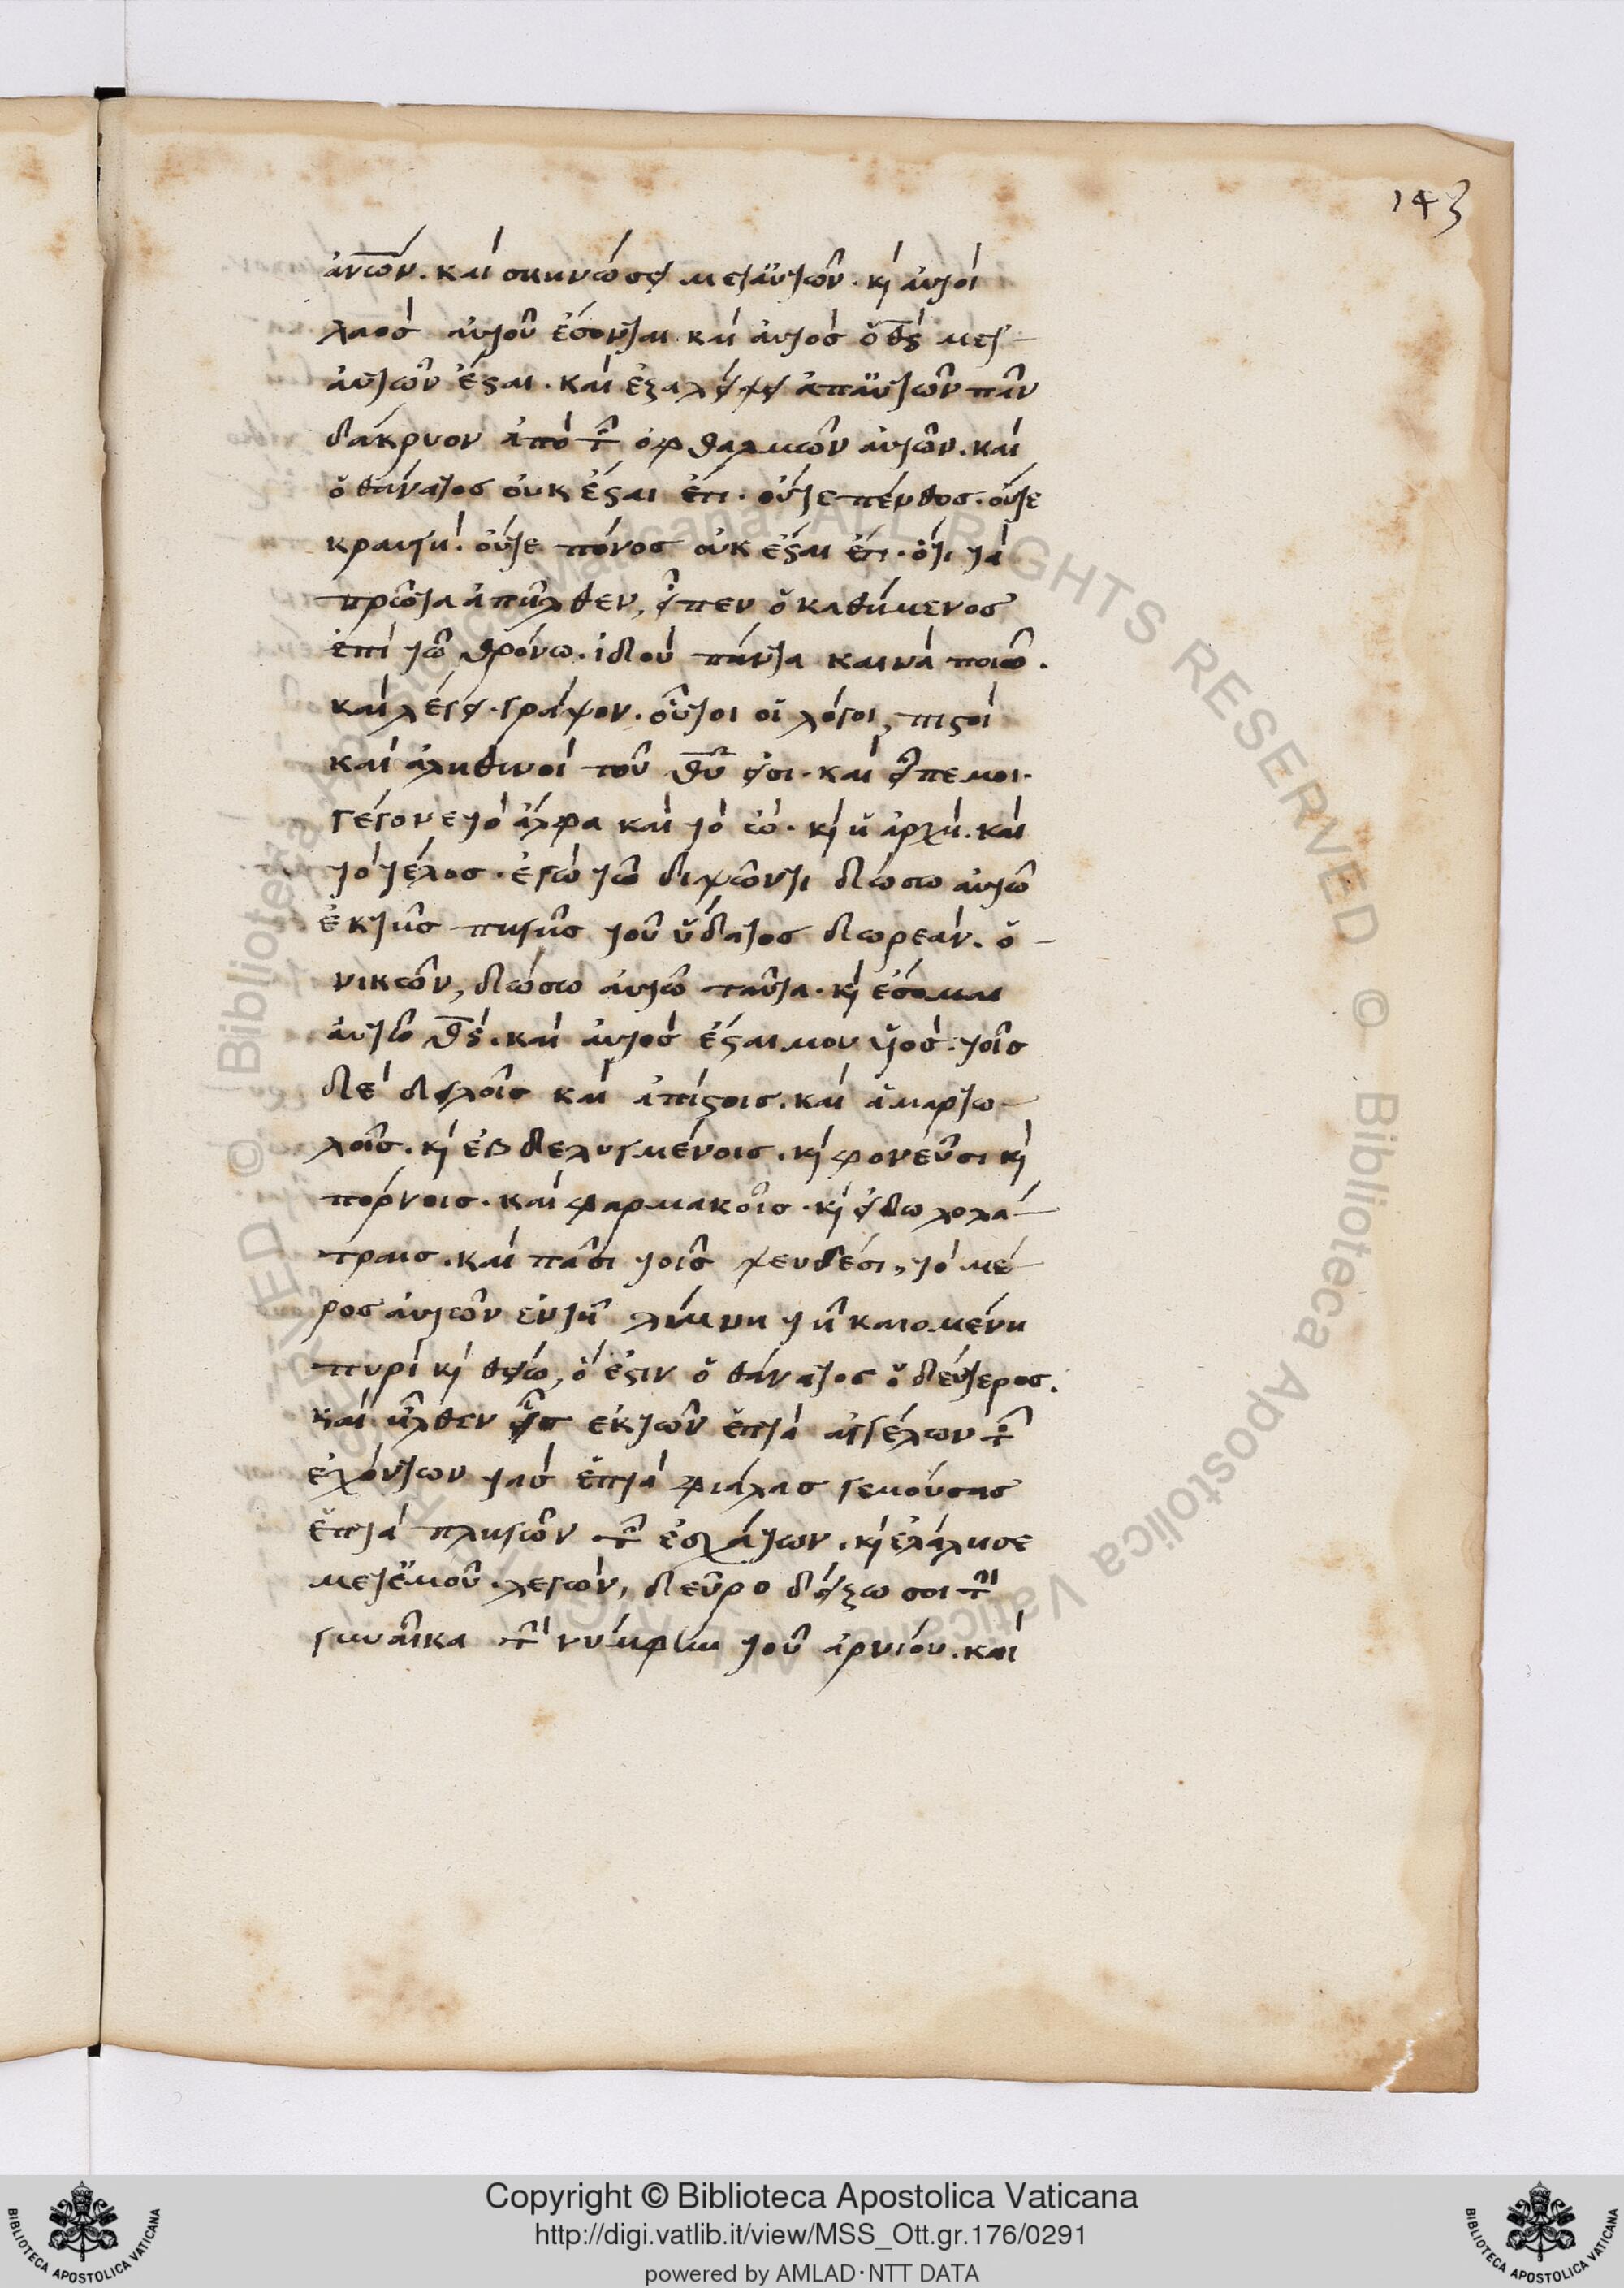 143
ἀν̅ω̅ν. καὶ σκηνώσει μεταὐτῶν. κὶ ἀυτοὶ
λαὸς αὐτοῦ ἔσονται. καὶ ἀυτὸς ὁ θ̅ς̅ μετ
ἀυτῶν ἔσται. καὶ ἐξαλείψει ἀπαὐτῶν πᾶν
δάκρυον ἀπὸ τῶν ὀφθαλμῶν ἀυτῶν. καὶ
ὁ θάνατος οὐκ ἔσται ἔτι. οὔτε πένθος. οὔτε
κραυγὴ. οὔτε πόνος οὐκ ἔσται ἔτι. ὅτι τὰ
πρῶτα ἀπῆλθεν, εἶπεν ὁ καθήμενος
ἐπὶ τῶ θρόνω. ἰδοὺ πάντα καινὰ ποιῶ.
καὶ λέγει. γράψον. οὗτοι οἱ λόγοι, πιστοὶ
καὶ ἀληθινοὶ τοῦ θ̅υ̅ εἰσι. καὶ εἶπε μοι.
γέγονε τὸ ἄλφα καὶ τὸ ὦ. κὶ ἡ ἀρχὴ. καὶ
τὸ τέλος. ἐγὼ τῶ διψῶντι δώσω ἀυτῶ
ἐκτῆς πηγῆς τοῦ ὕδατος δωρεὰν. ὁ
νικῶν, δώσω ἀυτῶ ταῦτα. κὶ ἔσομαι
ἀυτῶ θ̅ς̅. καὶ ἀυτὸς ἔσται μου υἱὸς. τοῖς
δὲ δειλοῖς καὶ ἀπίστοις. καὶ ἁμαρτω
λοῖς. κὶ ἐβδελυγμένοις. κὶ φονεῦσι κὶ
πόρνοις. καὶ φαρμακοῖς. κὶ εἰδωλολά
τραις. καὶ πᾶσι τοῖς ψευδέσι, τὸ μέ
ρος ἀυτῶν ἐντῆ λίμνη τῆ καιομένη
πυρὶ κὶ θείω, ὅ ἐστιν ὁ θάνατος ὁ δεύτερος.
καὶ ἦλθεν εἷς ἐκτῶν ἑπτὰ ἀγγέλων τῶν
ἐχόντων τὰς ἑπτὰ φιάλας γεμούσας
ἑπτὰ πληγῶν τῶν ἐσχάτων. κὶ ἐλάλησε
μετἐμοῦ. λέγων, δεῦρο δείξω σοι τὴν
γυναῖκα τὴν νύμφην τοῦ ἀρνίου. καὶ
Copyright © Biblioteca Apostolica Vaticana
http://digi.vatlib.it/view/MSS_Ott.gr.176/0291
powered by AMLAD·NTT DATA